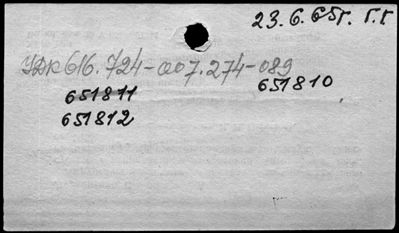 23.6.65г. г.г
УДК 616.724-007.274-089
651811 651810
651812